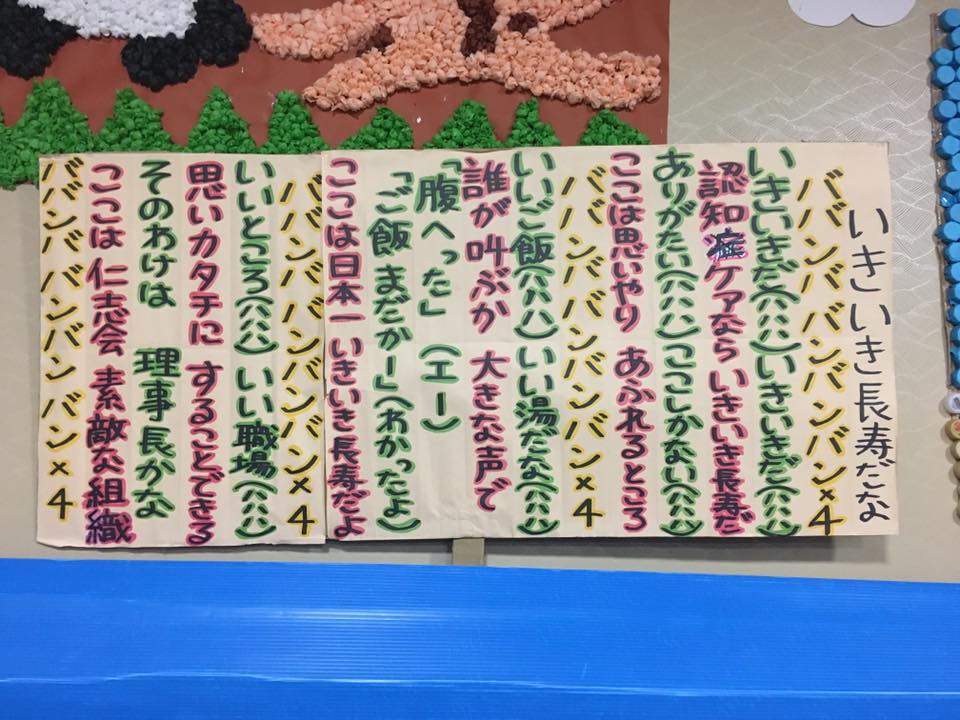 いきいき長寿だな
ババンバ バンバンバン×4
いきいきだ(ハハハ) いきいきだ(ハハハ)
認知症ケアなら いきいき長寿だ
ありがたい(ハハハ) ここしかない(ハハハ)
ここは思いやり あふれるところ
ババンバ バンバンバン×4
いいご飯(ハハハ) いい湯だな(ハハハ)
誰が叫ぶか 大きな声で
「腹へった」 (エー)
「ご飯 まだかー」(わかったよ)
ここは日本一 いきいき長寿だよ
ババンバ バンバンバン×4
いいところ(ハハハ) いい職場(ハハハ)
思いカタチに することできる
そのわけは 理事長かな
ここは 仁志会 素敵な組織
ババンバ バンバンバン×4